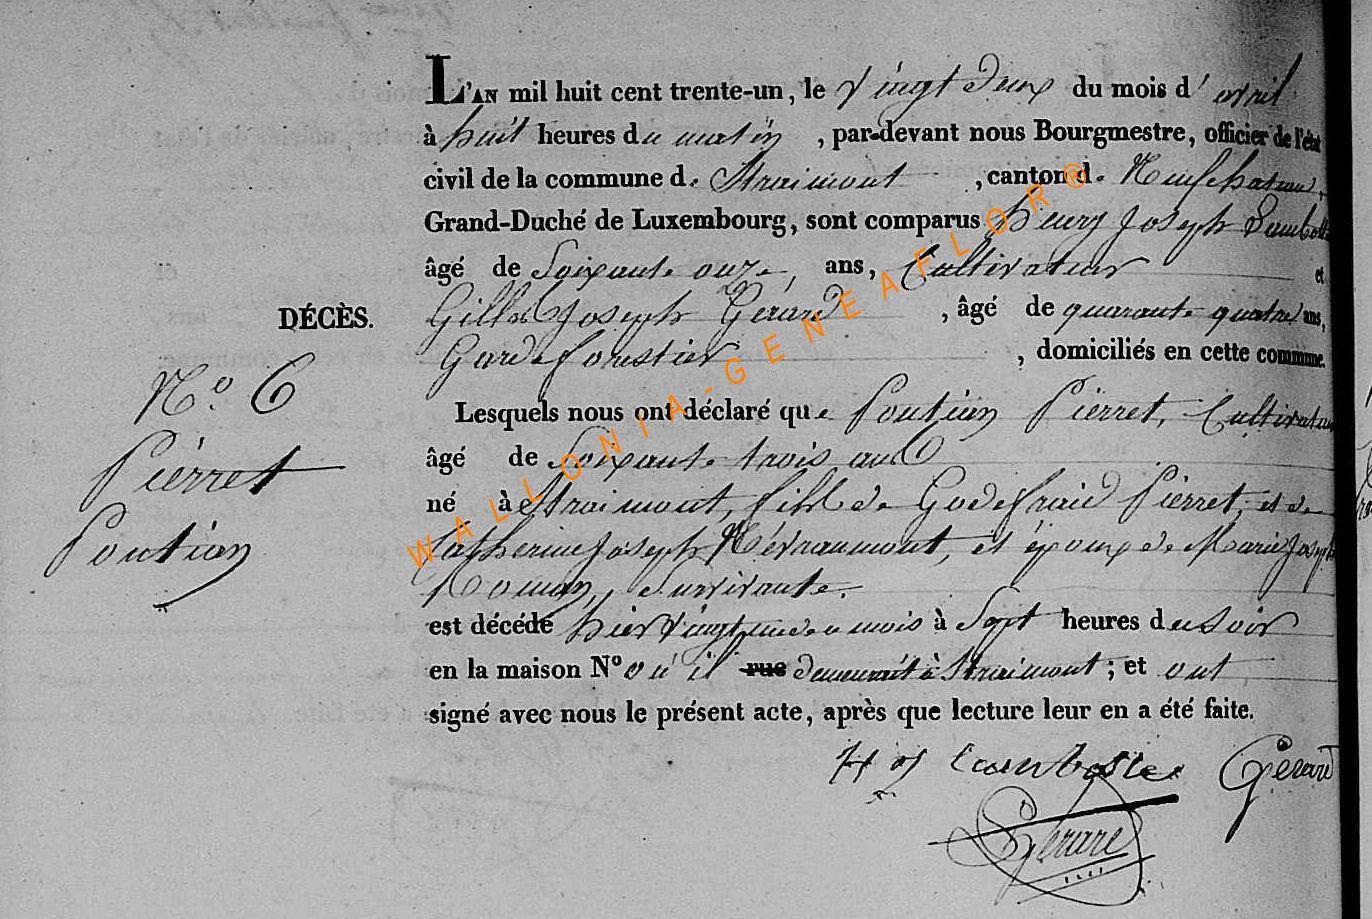 L'AN mil huit cent trente-un, le vingt deux du mois d'avril
à huit heures du matin, par-devant nous Bourgmestre, officier de l'état
civil de la commune de Straimont, canton de Neufchateau,
Grand-Duché de Luxembourg, sont comparus henry Joseph
âgé de Soixante onze, ans, Cultivateur et
DÉCÈS.
Gilles Joseph Gérard, âgé de quarante quatre ans,
Garde forestier, domiciliés en cette commune.
N° 6
Lesquels nous ont déclaré que Pontian Pierret, Cultivateur
Pierret
âgé de Soixante trois ans
né à Straimont, fils de Godefraid Pierret, et de
Pontian
Catherine Joseph Névraumont, et époux de Marie Joseph
Roman, Survivante.
est décédé hier vingt un de ce mois à Sept heures du Soir
en la maison N° où il rue demeurait à Straimont; et ont
signé avec nous le présent acte, après que lecture leur en a été faite.
H J Gérard
Gérard
WALLONIA-GENEAFLOR®